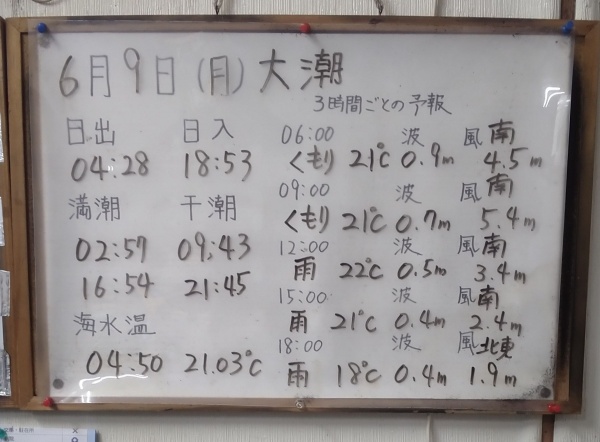 6月9日(月)大潮
3時間ごとの予報
日出 日入
04:28 18:53
満潮 干潮
02:57 09:43
16:54 21:45
海水温
04:50 21.03℃
06:00 波 風南
くもり 21℃ 0.9m 4.5m
09:00 波 風南
くもり 21℃ 0.7m 5.4m
12:00 波 風南
雨 22℃ 0.5m 3.4m
15:00 波 風南
雨 21℃ 0.4m 2.4m
18:00 波 風北東
雨 18℃ 0.4m 1.9m